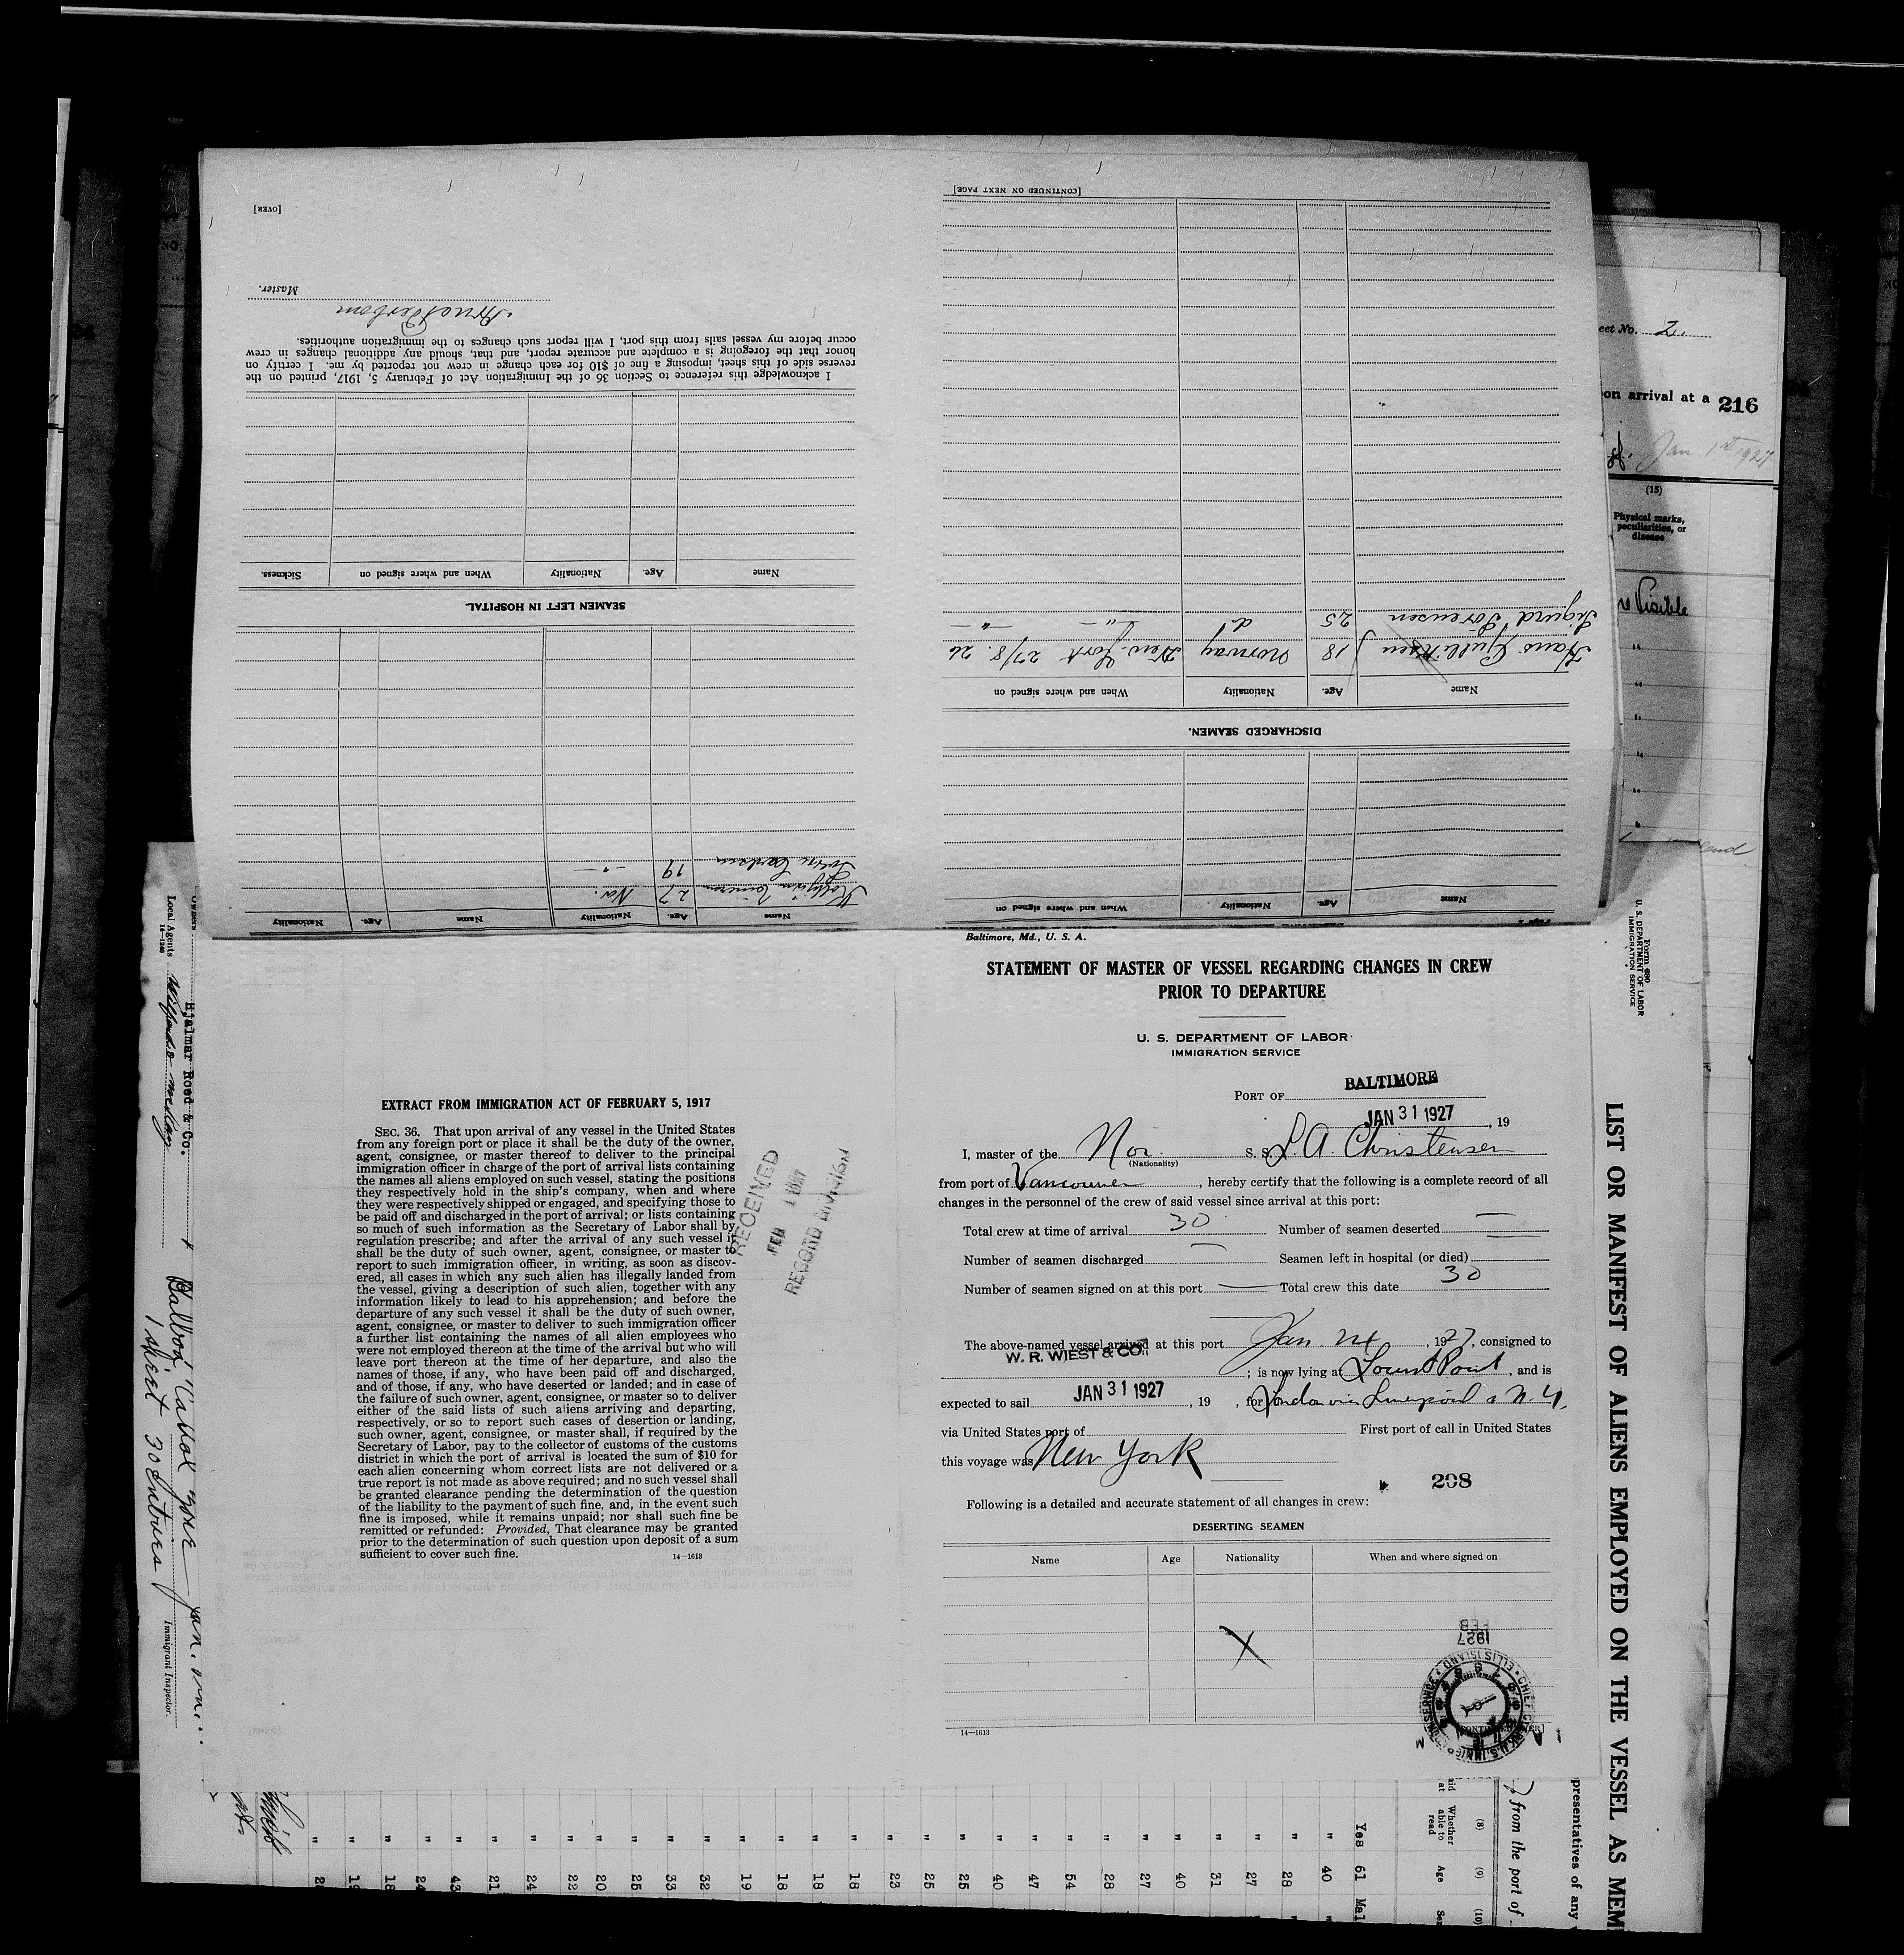 Baltimore, Md., U. S. A.
STATEMENT OF MASTER OF VESSEL REGARDING CHANGES IN CREW
PRIOR TO DEPARTURE
U. S. DEPARTMENT OF LABOR
IMMIGRATION SERVICE
PORT OF BALTIMORE
JAN 31 1927, 19
I, master of the Nor. S. S. L. A. Christensen
(Nationality)
from port of Vancouver, hereby certify that the following is a complete record of all
changes in the personnel of the crew of said vessel since arrival at this port:
Total crew at time of arrival 30 Number of seamen deserted —
Number of seamen discharged — Seamen left in hospital (or died) —
Number of seamen signed on at this port — Total crew this date 30
The above-named vessel arrived at this port Jan. , 1927, consigned to
W. R. WIEST & CO. ; is now lying at Locust Point, and is
expected to sail JAN 31 1927, 19 , for London via Liverpool & N. Y.
via United States port of First port of call in United States
this voyage was New York
208
Following is a detailed and accurate statement of all changes in crew:
DESERTING SEAMEN
Name Age Nationality When and where signed on
X
14—1613
EXTRACT FROM IMMIGRATION ACT OF FEBRUARY 5, 1917
SEC. 36. That upon arrival of any vessel in the United States
from any foreign port or place it shall be the duty of the owner,
agent, consignee, or master thereof to deliver to the principal
immigration officer in charge of the port of arrival lists containing
the names all aliens employed on such vessel, stating the positions
they respectively hold in the ship's company, when and where
they were respectively shipped or engaged, and specifying those to
be paid off and discharged in the port of arrival; or lists containing
so much of such information as the Secretary of Labor shall by
regulation prescribe; and after the arrival of any such vessel it
shall be the duty of such owner, agent, consignee, or master to
report to such immigration officer, in writing, as soon as discov-
ered, all cases in which any such alien has illegally landed from
the vessel, giving a description of such alien, together with any
information likely to lead to his apprehension; and before the
departure of any such vessel it shall be the duty of such owner,
agent, consignee, or master to deliver to such immigration officer
a further list containing the names of all alien employees who
were not employed thereon at the time of the arrival but who will
leave port thereon at the time of her departure, and also the
names of those, if any, who have been paid off and discharged,
and of those, if any, who have deserted or landed; and in case of
the failure of such owner, agent, consignee, or master so to deliver
either of the said lists of such aliens arriving and departing,
respectively, or so to report such cases of desertion or landing,
such owner, agent, consignee, or master shall, if required by the
Secretary of Labor, pay to the collector of customs of the customs
district in which the port of arrival is located the sum of $10 for
each alien concerning whom correct lists are not delivered or a
true report is not made as above required; and no such vessel shall
be granted clearance pending the determination of the question
of the liability to the payment of such fine, and, in the event such
fine is imposed, while it remains unpaid; nor shall such fine be
remitted or refunded: Provided, That clearance may be granted
prior to the determination of such question upon deposit of a sum
sufficient to cover such fine.
14—1613
RECEIVED
FEB 1 1927
RECORD DIVISION
Name Age. Nationality. When and where signed on
DISCHARGED SEAMEN.
Name Age. Nationality When and where signed on
Hans Gulliksen 18 Norway New-York 27/8. 26
Sigurd Sorensen 25 d — " — — " —
[CONTINUED ON NEXT PAGE]
Name Age. Nationality Name Age. Nationality
27 Nor.
19 — " —
SEAMEN LEFT IN HOSPITAL
Name Age. Nationality When and where signed on Sickness.
I acknowledge this reference to Section 36 of the Immigration Act of February 5, 1917, printed on the
reverse side of this sheet, imposing a fine of $10 for each change in crew not reported by me. I certify on
honor that the foregoing is a complete and accurate report, and that, should any additional changes in crew
occur before my vessel sails from this port, I will report such changes to the immigration authorities.
Master.
[OVER]
eet No. 2.
on arrival at a 216
Jan 1st 1927
(15)
Physical marks,
peculiarities, or
disease
Visible
Form 680
U. S. DEPARTMENT OF LABOR
IMMIGRATION SERVICE
LIST OR MANIFEST OF ALIENS EMPLOYED ON THE VESSEL AS MEM
presentatives of any
from the port of
(8) (9) (10)
Whether able to read Age Sex
Yes 61 Mal
" 40
" 28
" 27
" 31
" 40
" 27
" 28
" 54
" 47
" 40
" 25
" 25
" 23
" 18
" 18
" 18
" 19
" 32
" 33
" 25
" 20
" 22
" 24
" 21
" 43
" 24
" 18
Owners Hjalmar Roed & Co.
Local Agents
14—1240
Balboa, Canal Zone Jan.
1 sheet 30 Entries
Immigrant Inspector.